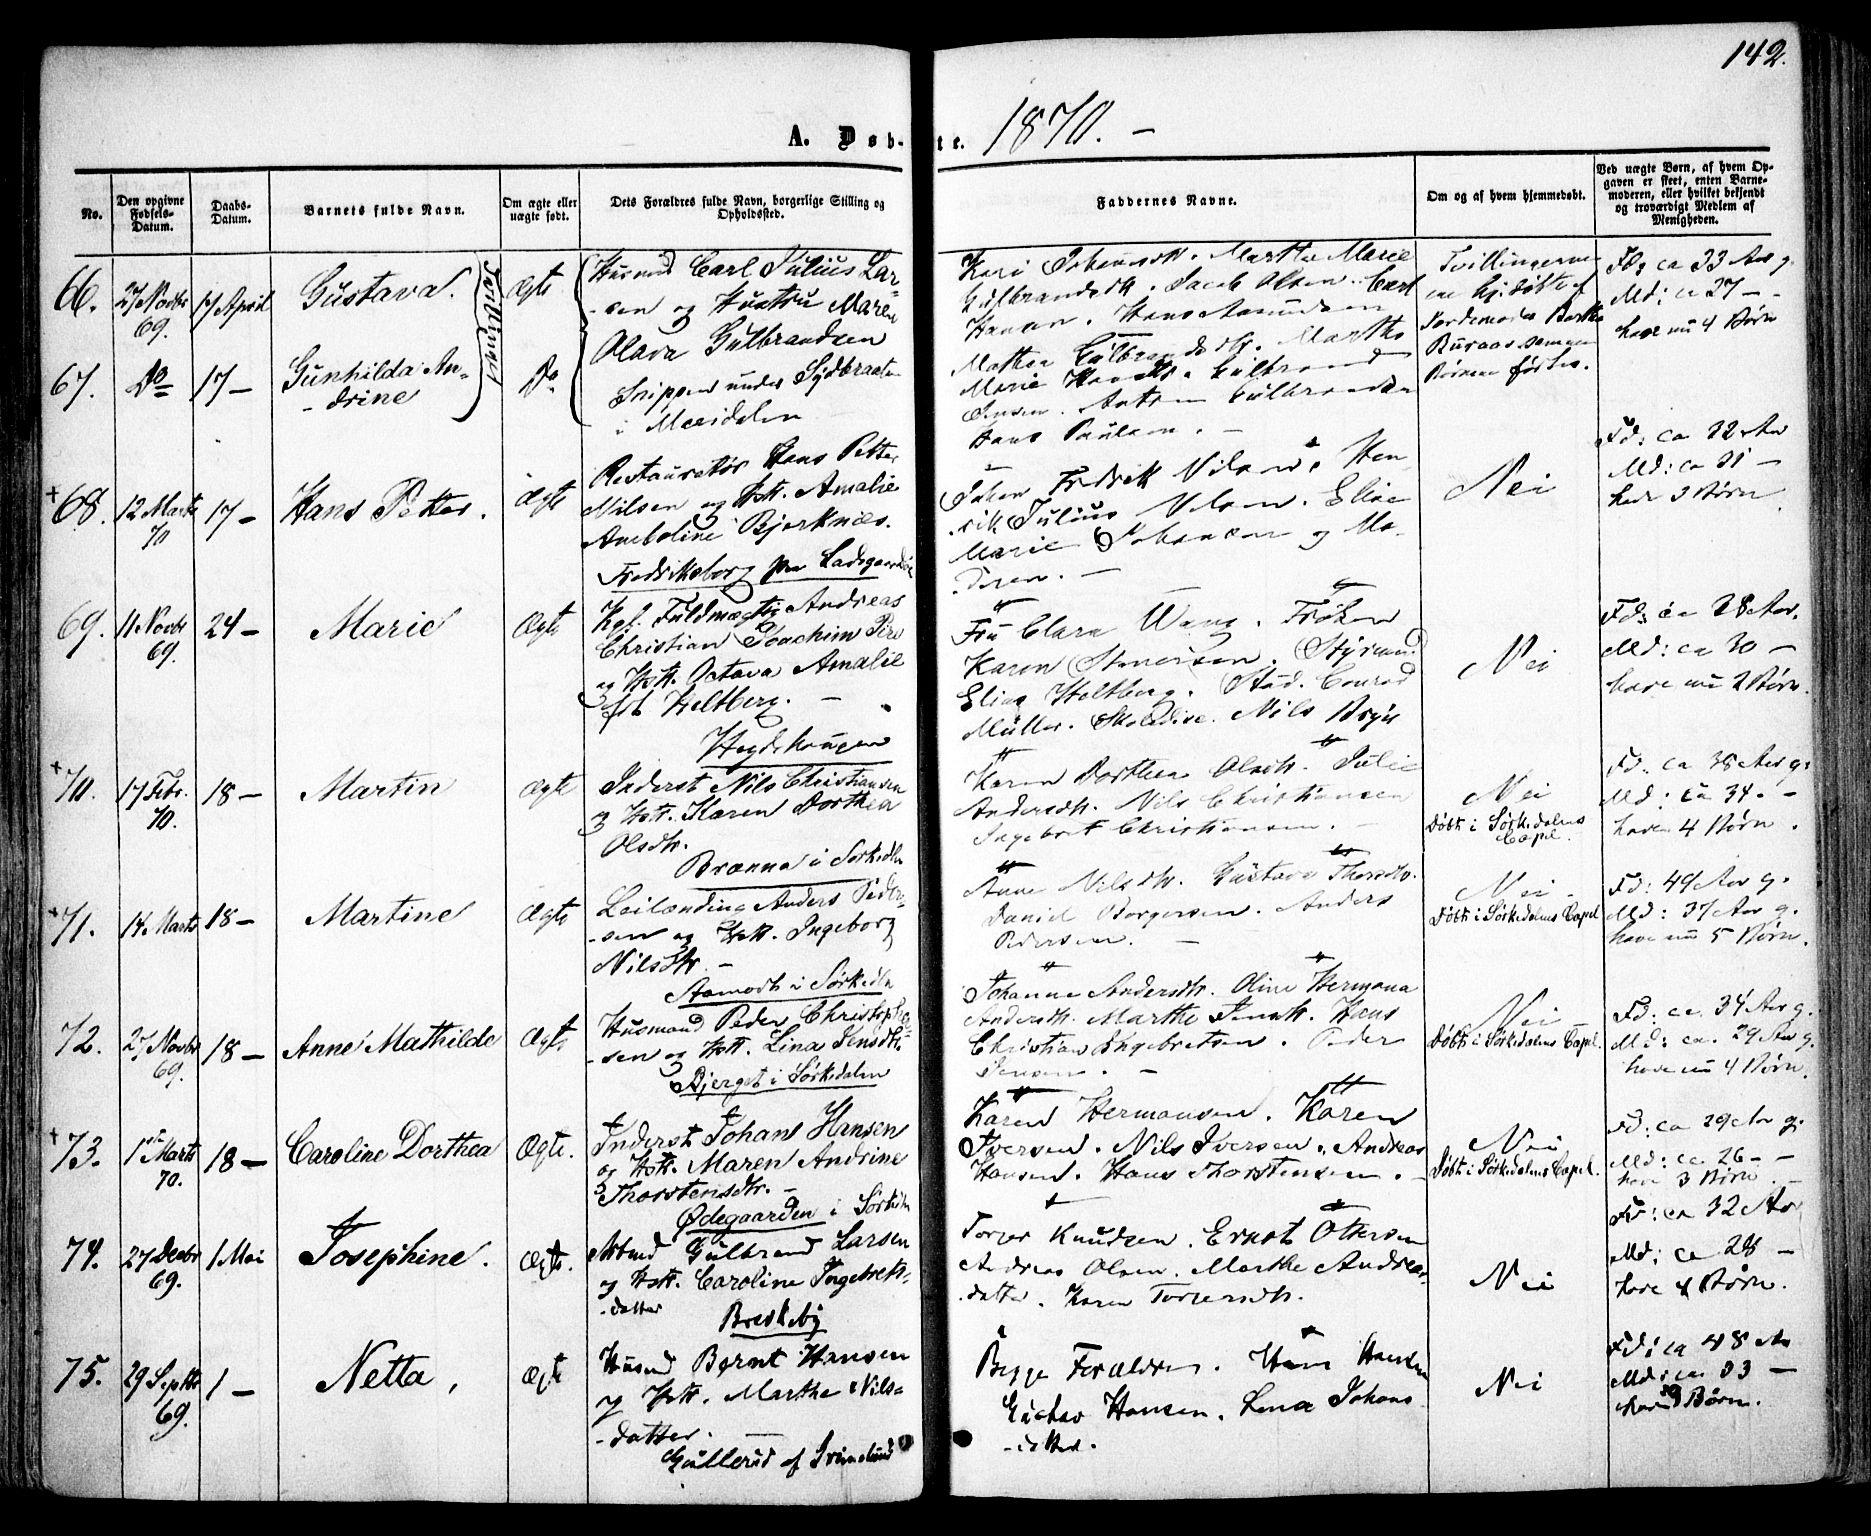 142.
A. Døb- te. 1870. –
No.
Den opgivne Fødsels-Datum.
Daabs-Datum.
Barnets fulde Navn.
Om ægte eller uægte født.
Dets Forældres fulde Navn, borgerlige Stilling og Opholdssted.
Faddernes Navne.
Om og af hvem hjemmedøbt.
Ved uægte Børn, af hvem Opgaven er skeet, enten Barnemoderen, eller hvilket bekjendt og troværdigt Medlem af Menigheden.
66. 27 Novbr 69. 17 April Gustava. Tvillinger Ægte
Husmd Carl Julius Lar-
-sen og Hustru Maren
Olava Gulbrandsen
67. Do 17 – Gunhilda An-
-drine Do
Snippen under Sydbraaten
i Maridalen
Kari Johannsdtr. Marthe Marie
Gulbrandsdtr. Jacob Olsen. Carl
Hansen. Hans Asmundsen
Mathea Gulbrandsdtr. Marthe
Marie Hansdtr. Gulbrand
Jensen. Anton Gulbrandsen
Hans Paulsen. –
Tvillingerne
ere hj. døbte af
Jordemoder Berthe
Buraas sammen
Fd: ca 33 Aar g.
Md: ca 27 – –
have nu 4 Børn
+ 68. 12 Marts 70 17 – Hans Petter. Ægte
Restauratør Hans Petter
Nilsen og Hstr. Amalie
Amboline Bjerknæs.
Fredriksborg paa Ladegaardsøe
Johan Fredrik Nilsen. Hen-
-rik Julius Nilsen. Elise
Marie Johansen og Mo-
-deren. –
Nei
Fd: ca 32 Aar
Md: ca 31 –
have 3 Børn
69. 11 Novbr 69. 24 – Marie Ægte
Kgl. Fuldmægtig Andreas
Christian Joachim
og Hstr. Octava Amalie
født Heltberg. –
Hegdehaugen
Fru Clara Wang. Frøken
Karen Stenersen. Styrmand
Elias Holtberg. Stud. Conrad
Müller. Nils Bryn
Nei
Fd: ca 28 Aar.
Md: ca 30 –
have nu 2 Børn.
+ 70. 17 Febr. 70. 18 – Martin Ægte
Inderst Nils Christiansen
og Hstr. Karen Dorthea
Olsdtr.
Brænna i Sørkedln
Karen Dorthea Olsdtr. Julie
Andersdtr. Nils Christiansen
Ingebret Christiansen. –
Nei
Døbt i Sørkedalens
Capel.
Fd: ca 38 Aar g.
Md: ca 34. –
have 4 Børn.
+ 71. 14 Marts 18 – Martine Ægte
Leilænding Anders Peder-
-sen og Hstr. Ingeborg
Nilsdtr. –
Aamodt i Sørkedln
Anne Nilsdtr. Gustava Thorsdtr.
Daniel Borgersen. Anders
Pedersen. –
Nei –
Døbt i Sørkedalens Capel
Fd: 49 Aar g.
Md: 37 Aar g.
have nu 5 Børn.
72. 27 Novbr 69. 18 – Anne Mathilde Ægte
Husmand Peder Christophe-
-sen og Hstr. Lina Jensdtr.
Bjerget i Sørkedalen
Johanne Andersdtr. Oline Hermana
Andersdtr. Marthe Jensdtr. Hans
Christian Ingebretsen. Peder
Jensen. –
Nei
Døbt i Sørkedalens Capel.
Fd: ca. 34 Aar g.
Md: ca. 29 Aar g.
have nu 4 Børn.
+ 73. 1ste Marts 70. 18 – Caroline Dorthea Ægte.
Inderst Johans Hansen
og Hstr. Maren Andrine
Thorstensdtr. –
Ødegaarden i Sørkedln
Karen Hermansen. Karen
Iversen. Nils Iversen. Andreas
Hansen. Hans Thorstensen. –
Nei
Døbt i Sørkedalens Capel.
Fd: ca 29 Aar g.
Md: ca 26 – –
have 3 Børn. –
74. 27 Decbr 69. 1 Mai Josephine. Ægte.
Arbmd Gulbrand Larsen
og Hstr. Caroline Ingebrets-
-datter
Briskeby
Torger Knudsen. Ernst Ottersen
Andreas Olsen. Marthe Andreas-
-datter. Karen Torgersdtr.
Nei
Fd: ca 32 Aar
Md: ca 28 –
have 4 Børn.
75. 29 Septbr 69. 1 – Netta, Ægte
Husmd Bernt Hansen
og Hstr. Marthe Nils-
-datter. –
Gullerud af
Begge Forældre. Hans Hansen
Gustav Hansen. Lena Johans-
-datter.
Nei
Fd: ca 48 Aar
Md: ca 33 –
have Børn.